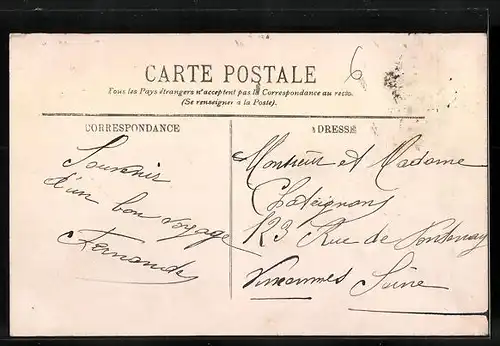 CARTE POSTALE
6
Tous les Pays étrangers n'acceptent pas la Correspondance au recto.
(Se renseigner à la Poste).
CORRESPONDANCE
Souvenir
d'un bon voyage
Fernande
ADRESSE
Monsieur et Madame
Chateignon
123 Rue de Fontenay
Vincennes Seine